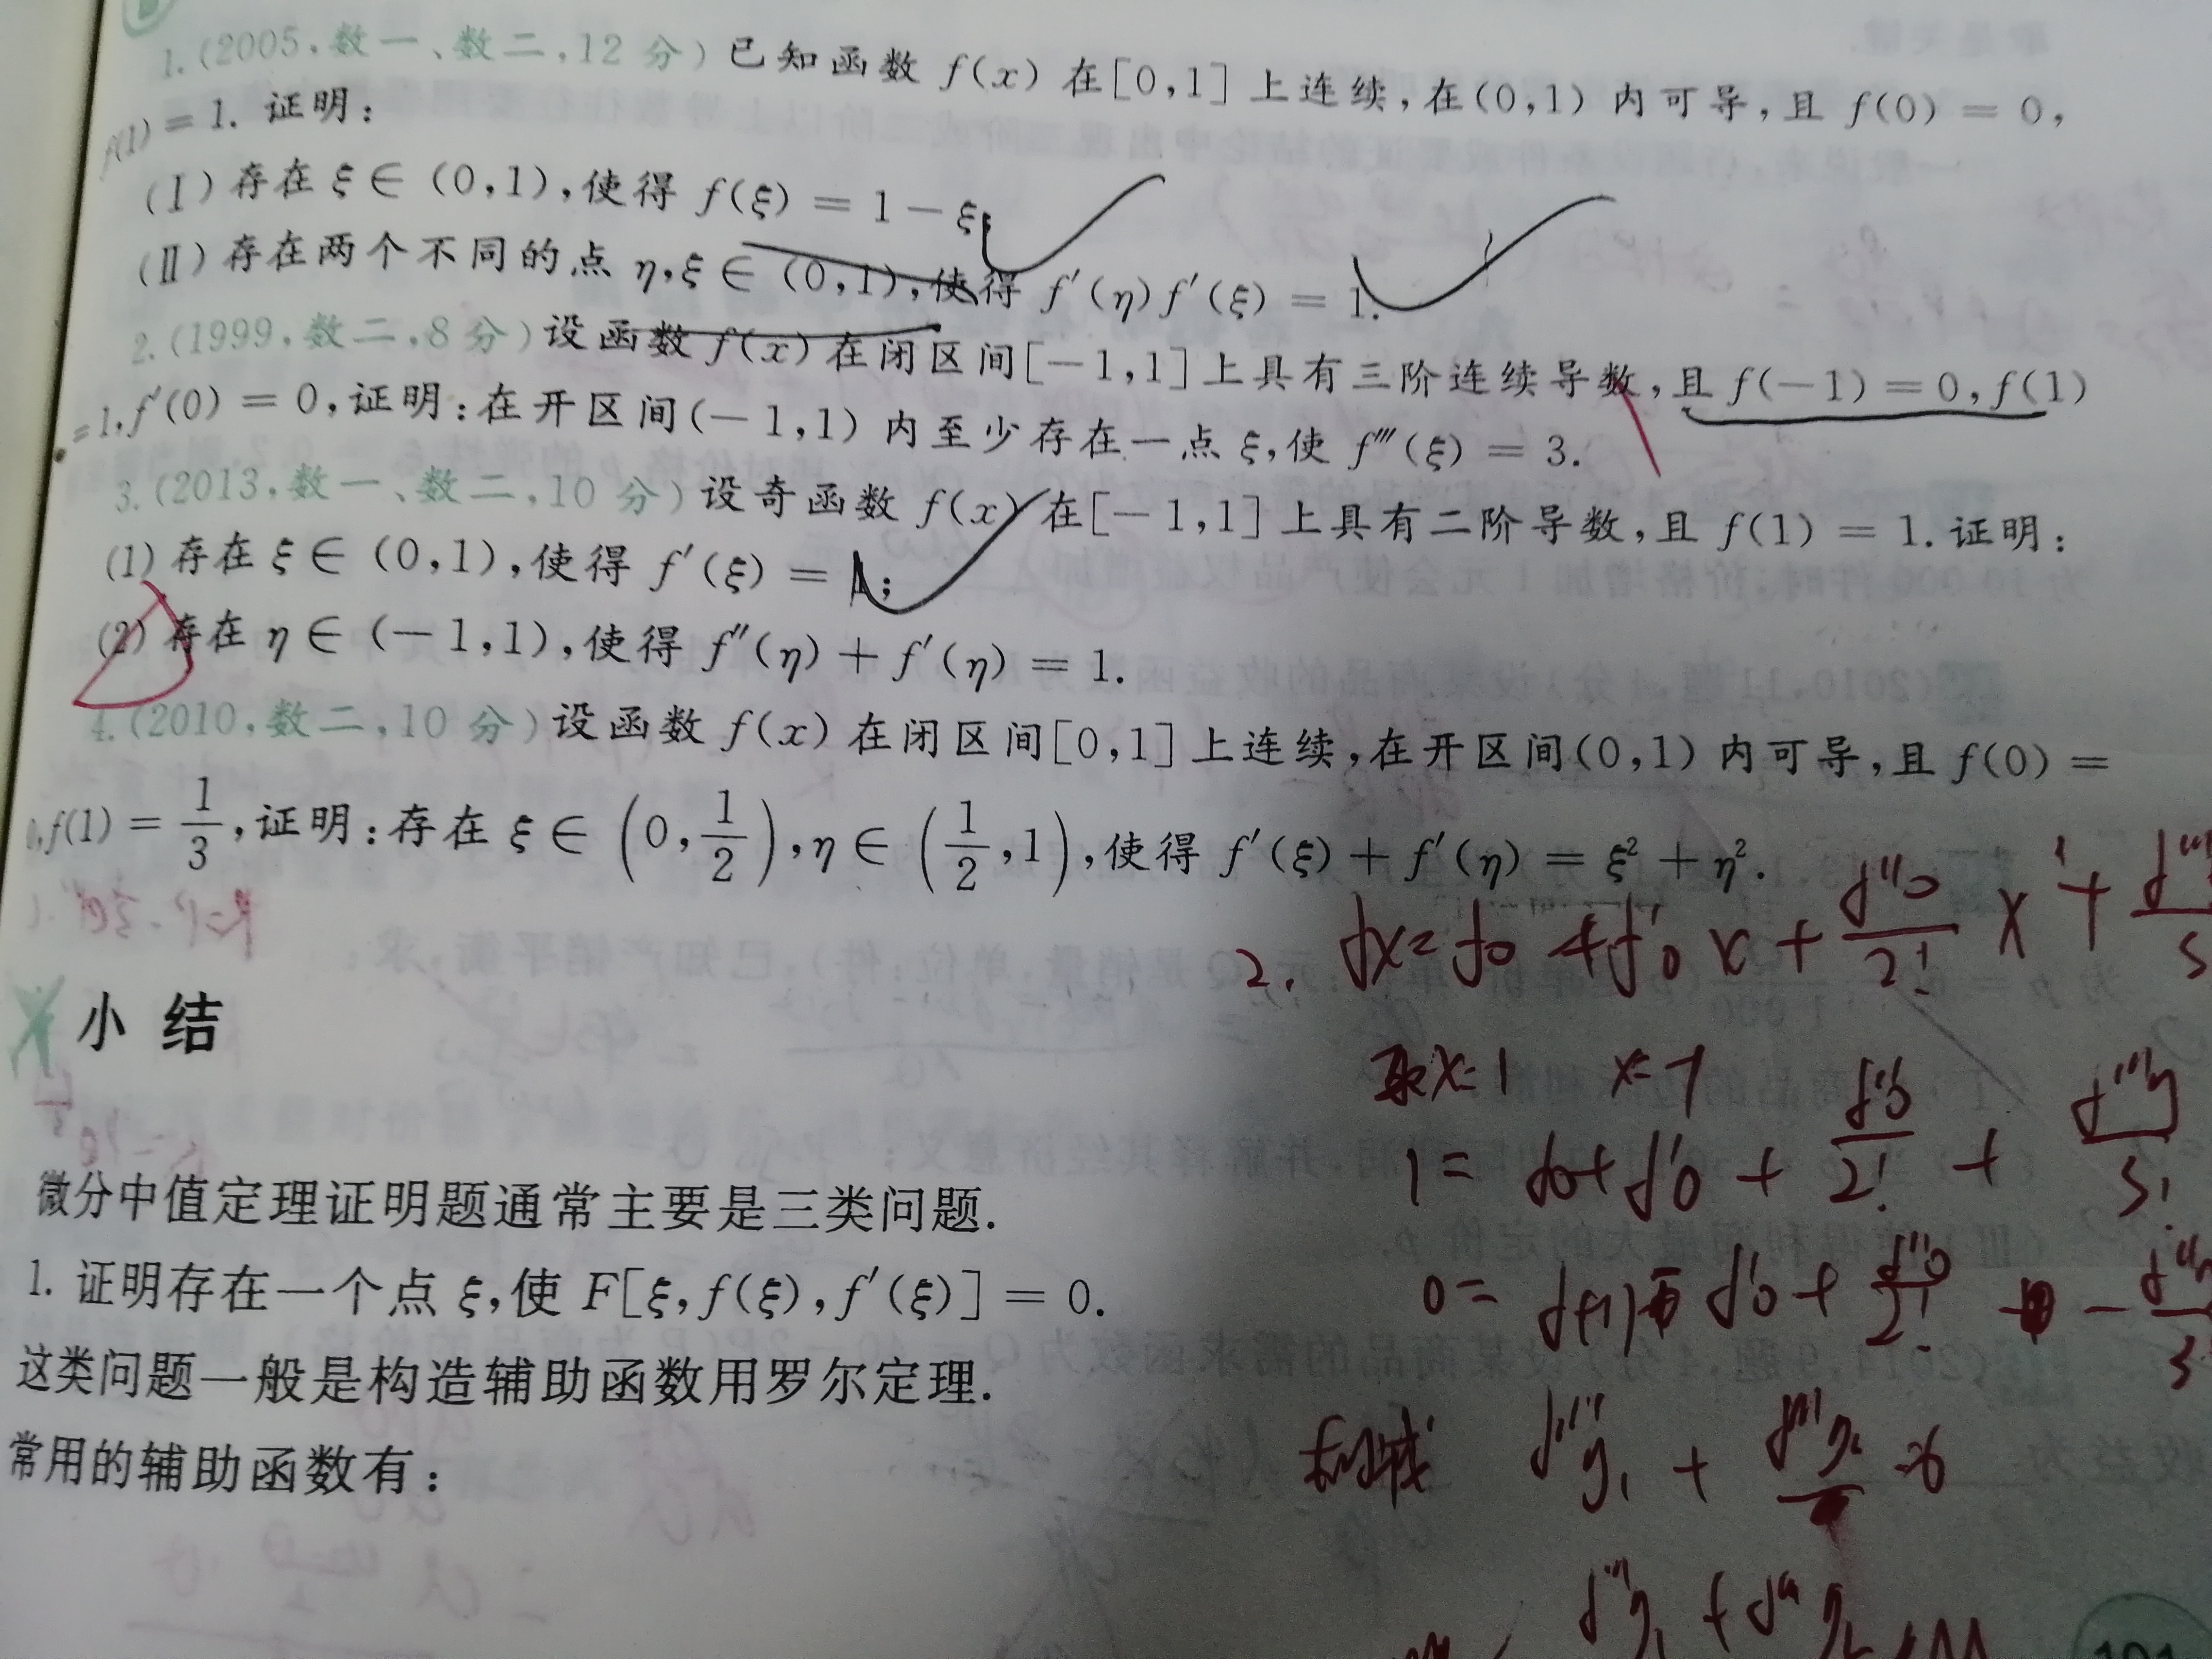 1.(2005,数一、数二,12分)已知函数 f(x) 在[0,1]上连续,在(0,1)内可导,且 f(0) = 0,
f(1) = 1. 证明:
(Ⅰ)存在 ξ ∈ (0,1),使得 f(ξ) = 1 − ξ
(Ⅱ)存在两个不同的点 η,ξ ∈ (0,1),使得 f′(η)f′(ξ) = 1.
2.(1999,数二,8分)设函数 f(x) 在闭区间[−1,1]上具有三阶连续导数,且 f(−1) = 0,f(1)
= 1,f′(0) = 0,证明:在开区间(−1,1)内至少存在一点 ξ,使 f‴(ξ) = 3.
3.(2013,数一、数二,10分)设奇函数 f(x) 在[−1,1]上具有二阶导数,且 f(1) = 1. 证明:
(1)存在 ξ ∈ (0,1),使得 f′(ξ) = 1;
(2)存在 η ∈ (−1,1),使得 f″(η) + f′(η) = 1.
4.(2010,数二,10分)设函数 f(x) 在闭区间[0,1]上连续,在开区间(0,1)内可导,且 f(0) =
0,f(1) = 1/3,证明:存在 ξ ∈ (0,1/2),η ∈ (1/2,1),使得 f′(ξ) + f′(η) = ξ² + η².
2. fx= f0 + f′0 x + f″0/2! x² + f‴
取x=1 x=-1
小结
1= f0+f′0 + f″0/2! + f‴η/3!
微分中值定理证明题通常主要是三类问题.
1. 证明存在一个点 ξ,使 F[ξ,f(ξ),f′(ξ)] = 0.
这类问题一般是构造辅助函数用罗尔定理.
f‴η₁ + f‴η₂ =6
常用的辅助函数有:
f‴η₁ + f‴η₂